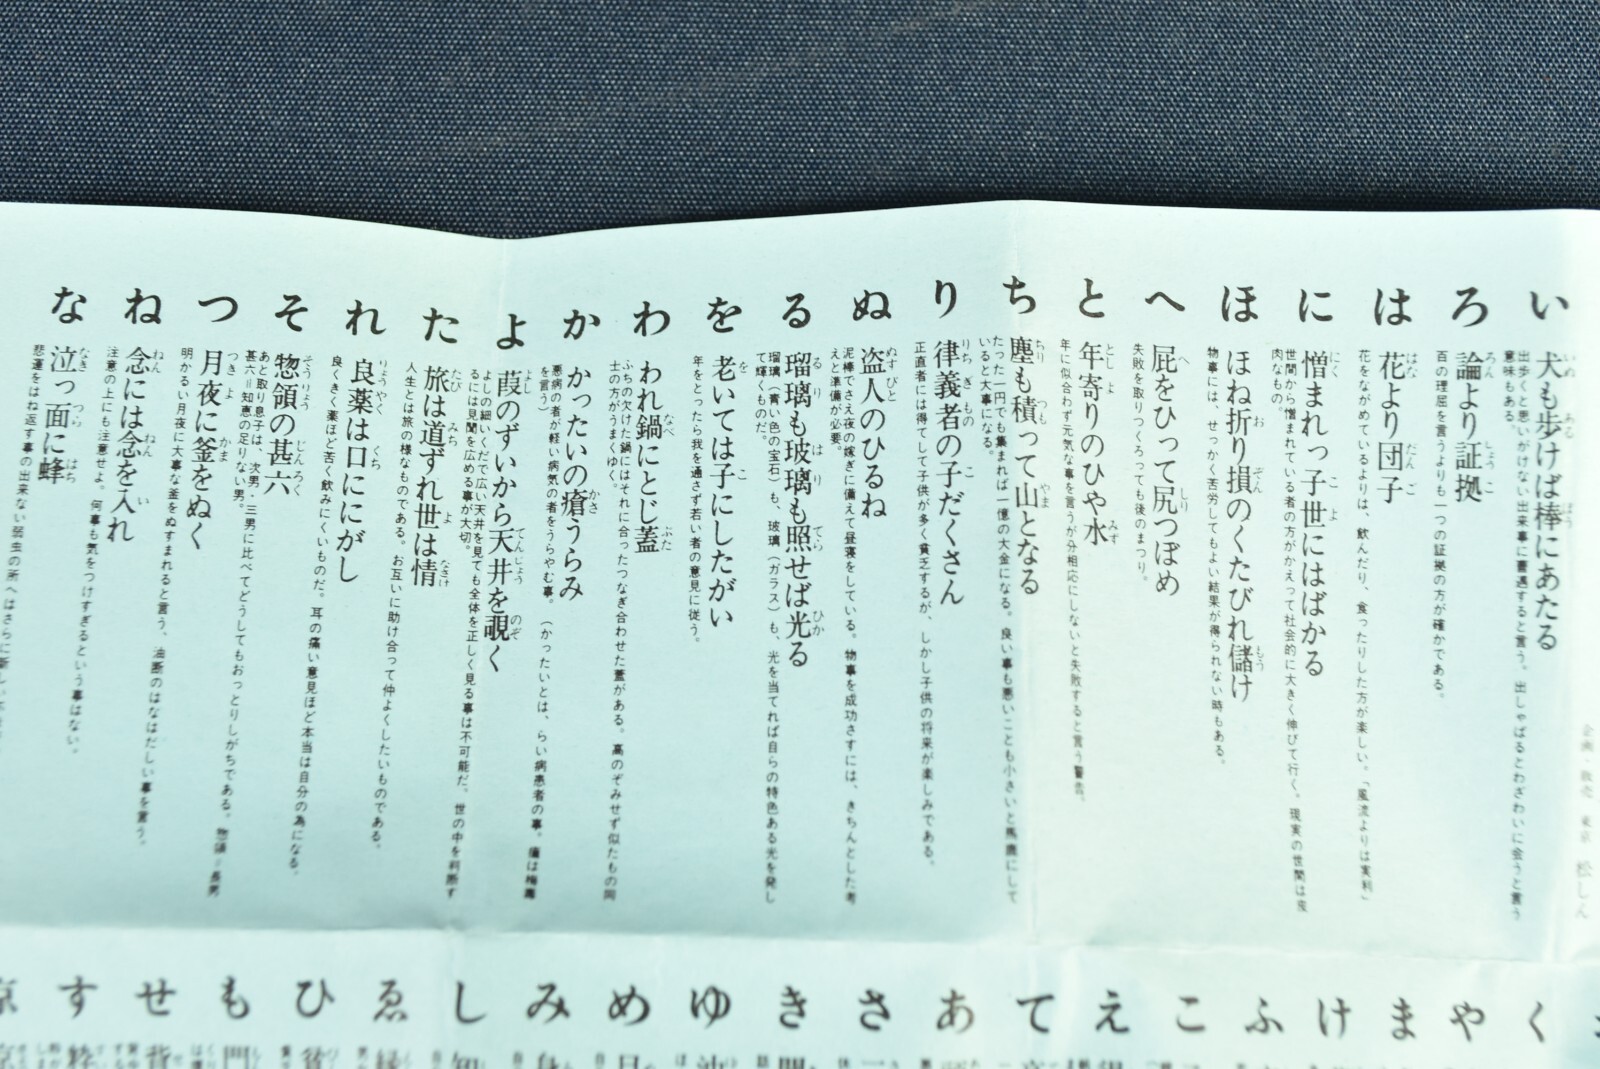 企画・販売 東京 松しん
い
犬も歩けば棒にあたる
出歩くと思いがけない出来事に遭遇すると言う。出しゃばるとわざわいに会うと言う
意味もある。
ろ
論より証拠
百の理屈を言うよりも一つの証拠の方が確かである。
は
花より団子
花をながめているよりは、飲んだり、食ったりした方が楽しい。「風流よりは実利」
に
憎まれっ子世にはばかる
世間から憎まれている者の方がかえって社会的に大きく伸びて行く。現実の世間は皮
肉なもの。
ほ
ほね折り損のくたびれ儲け
物事には、せっかく苦労してもよい結果が得られない時もある。
へ
屁をひって尻つぼめ
失敗を取りつくろっても後のまつり。
と
年寄りのひや水
年に似合わず元気な事を言うが分相応にしないと失敗すると言う警告。
ち
塵も積って山となる
たった一円でも集まれば一億の大金になる。良い事も悪いことも小さいと馬鹿にして
いると大事になる。
り
律義者の子だくさん
正直者には得てして子供が多く貧乏するが、しかし子供の将来が楽しみである。
ぬ
盗人のひるね
泥棒でさえ夜の嫁ぎに備えて昼寝をしている。物事を成功さすには、きちんとした考
えと準備が必要。
る
瑠璃も玻璃も照せば光る
瑠璃(青い色の宝石)も、玻璃(ガラス)も、光を当てれば自らの特色ある光を発し
て輝くものだ。
を
老いては子にしたがい
年をとったら我を通さず若い者の意見に従う。
わ
われ鍋にとじ蓋
ふちの欠けた鍋にはそれに合ったつなぎ合わせた蓋がある。高のぞみせず似たもの同
士の方がうまくゆく。
か
かったいの瘡うらみ
悪病の者が軽い病気の者をうらやむ事。(かったいとは、らい病患者の事。瘡は梅毒
を言う)
よ
葭のずいから天井を覗く
よしの細いくだで広い天井を見ても全体を正しく見る事は不可能だ。世の中を判断す
るには見聞を広める事が大切。
た
旅は道ずれ世は情
人生とは旅の様なものである。お互いに助け合って仲よくしたいものである。
れ
良薬は口ににがし
良くきく薬ほど苦く飲みにくいものだ。耳の痛い意見ほど本当は自分の為になる。
そ
惣領の甚六
あと取り息子は、次男・三男に比べてどうしてもおっとりしがちである。惣領=長男
甚六=知恵の足りない男。
つ
月夜に釜をぬく
明かるい月夜に大事な釜をぬすまれると言う、油断のはなはだしい事を言う。
ね
念には念を入れ
注意の上にも注意せよ。何事も気をつけすぎるという事はない。
な
泣っ面に蜂
悲運をはね返す事の出来ない弱虫の所へはさらに
く
や
ま
け
ふ
こ
え
て
あ
さ
き
ゆ
め
み
し
ゑ
ひ
も
せ
す